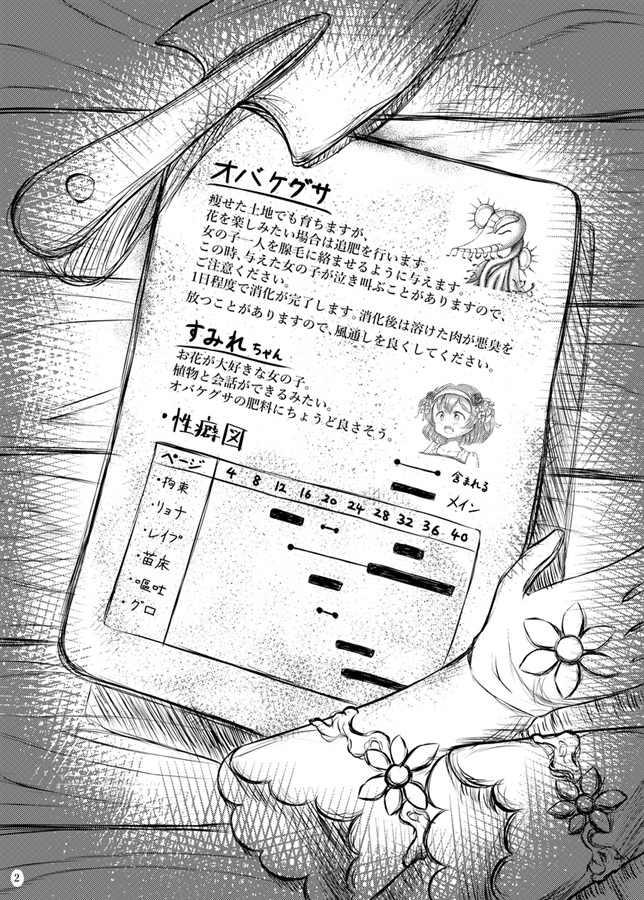 オバケグサ
痩せた土地でも育ちますが、
花を楽しみたい場合は追肥を行います。
女の子一人を腺毛に絡ませるように与えます。
この時、与えた女の子が泣き叫ぶことがありますので、
ご注意ください。
1日程度で消化が完了します。消化後は溶けた肉が悪臭を
放つことがありますので、風通しを良くしてください。
すみれちゃん
お花が大好きな女の子。
植物と会話ができるみたい。
オバケグサの肥料にちょうど良さそう。
・性癖図
含まれる
メイン
ページ 4 8 12 16 20 24 28 32 36 40
・拘束
・リョナ
・レイプ
・苗床
・嘔吐
・グロ
2